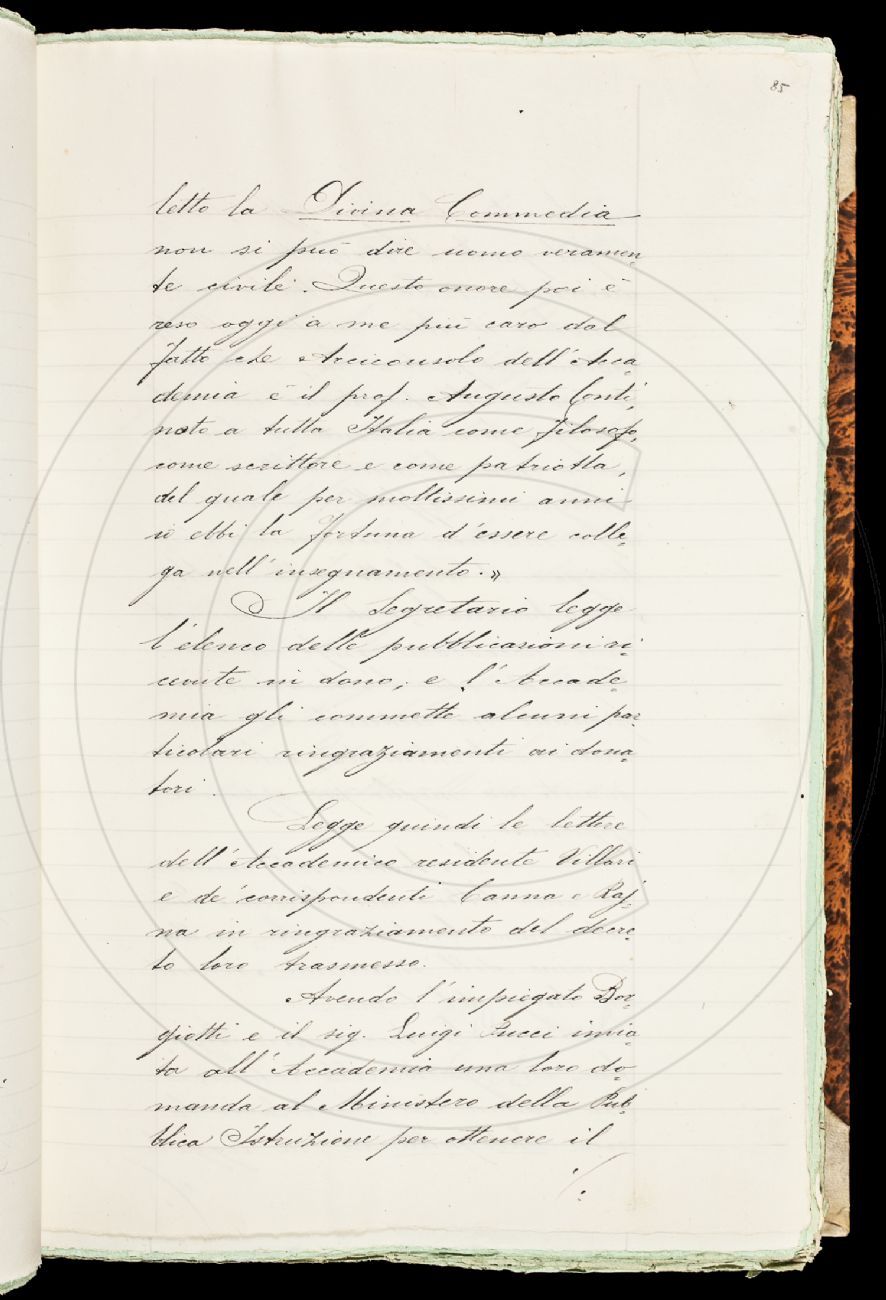 85
letto la Divina Commedia
non si può dire uomo veramen-
te civile. Questo onore poi è
reso oggi a me più caro dal
fatto che Arciconsolo dell'Acca-
demia è il prof. Augusto Conti,
noto a tutta Italia come filosofo,
come scrittore e come patriotta,
del quale per moltissimi anni
io ebbi la fortuna d'essere colle-
ga nell'insegnamento.»
Il Segretario legge
l'elenco delle pubblicazioni ri-
cevute in dono; e l'Accade-
mia gli commette alcuni par-
ticolari ringraziamenti ai dona-
tori.
Legge quindi le lettere
dell'Accademico residente Villari
e de' corrispondenti Canna e Raj-
na in ringraziamento del decre-
to loro trasmesso.
Avendo l'impiegato Bor-
giotti e il sig. Luigi Pucci invia-
ta all'Accademia una loro do-
manda al Ministero della Pub-
blica Istruzione per ottenere il
./.